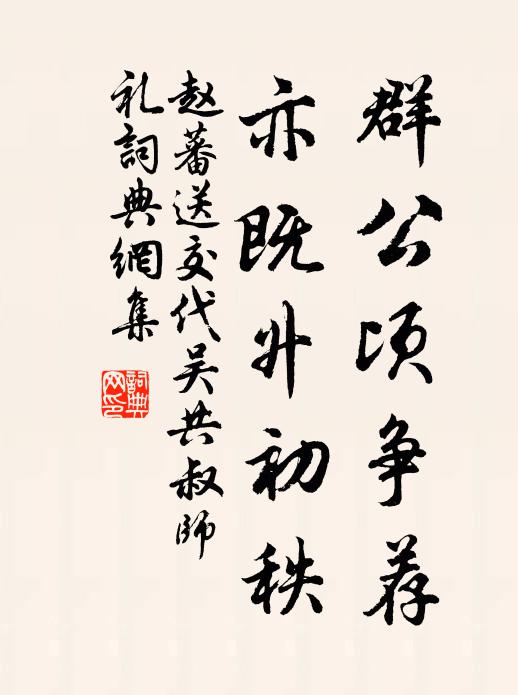 群公顷争荐
亦既升初秩
赵蕃送交代吴共叔师
礼词典網集
詞典网印